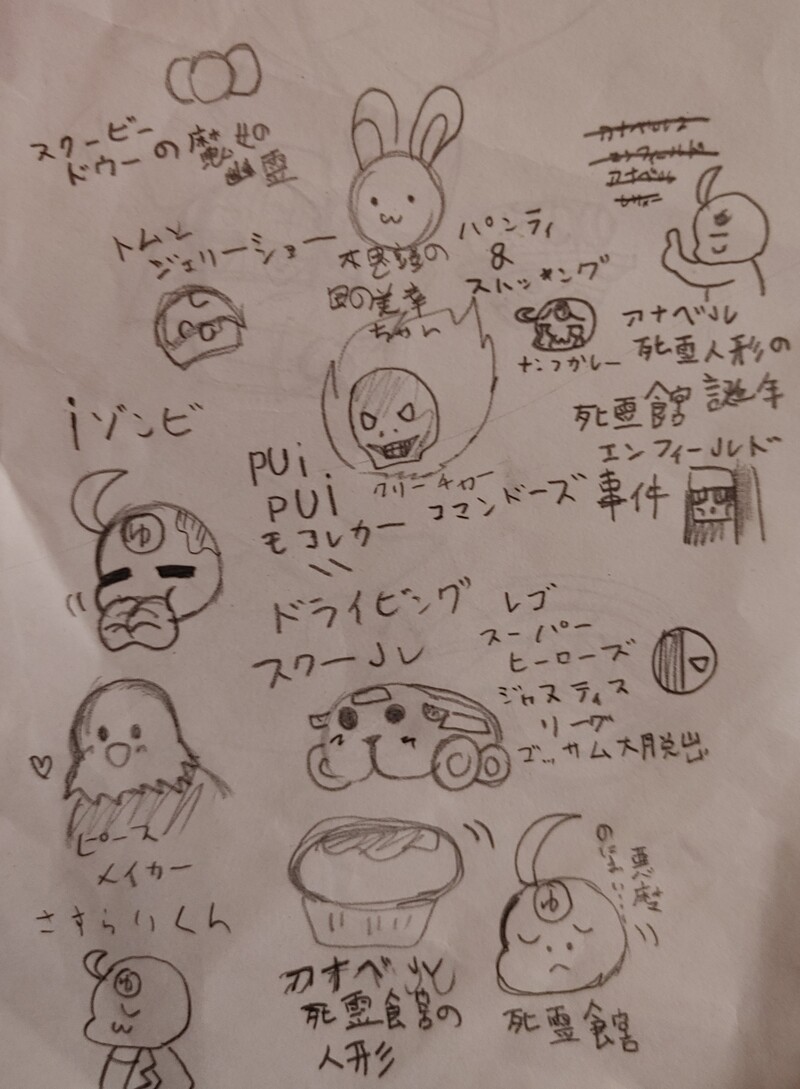 スクービー
ドゥーの魔女の
幽霊
トムとジェリーショー
不思議の
国の美幸
ちゃん
パンティ
&
ストッキング
ナンフカレー
アナベル
死霊人形の
死霊館 誕生
エンフィールド
事件
iゾンビ
クリーチャー
コマンドーズ
PUi
PUi
モコレカー
ドライビング
スクール
レゴ
スーパー
ヒーローズ
ジャスティス
リーグ
ゴッサム大脱出
ピース
メイカー
さすらいくん
ゆ
ゆ
アナベル
死霊館の
人形
悪魔
の
ゆ
死霊館